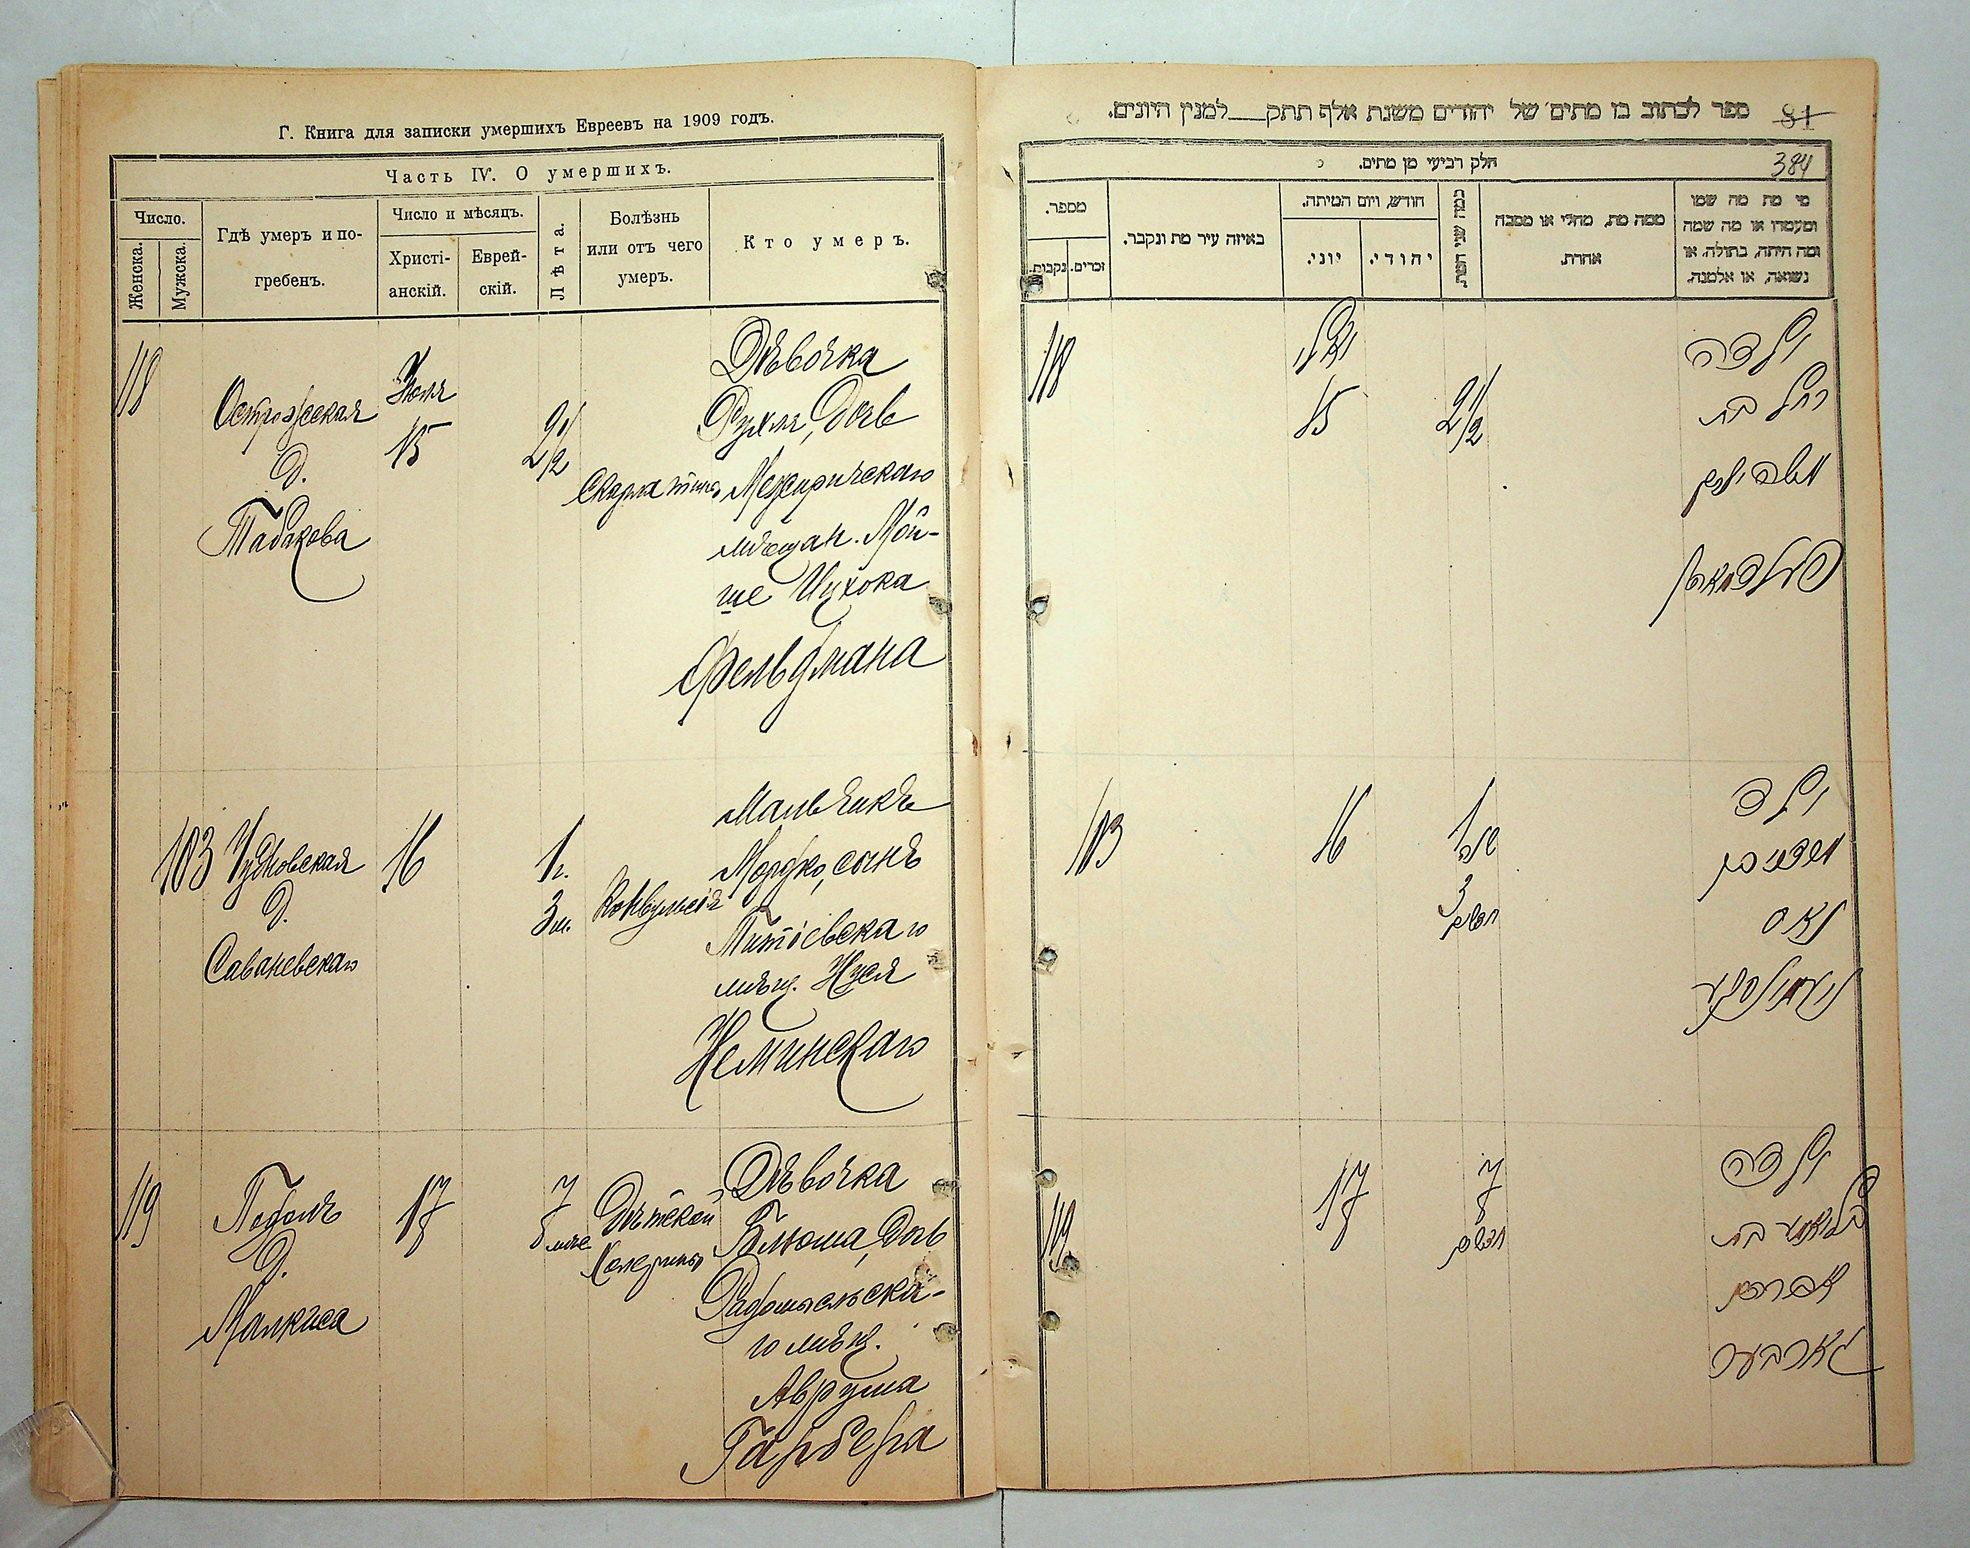 Г. Книга для записки умершихъ Евреевъ на 1909 годъ.
Часть IV. О умершихъ.
Число.
Женска.
Мужска.
Гдѣ умеръ и по-
гребенъ.
Число и мѣсяцъ.
Христі-
анскій.
Еврей-
скій.
Лѣта.
Болѣзнь
или отъ чего
умеръ.
Кто умеръ.
118
Острожская
д.
Табакова
Іюля
15
2 1/2
Скарлатина
Дѣвочка
Рухля, дочь
Межиричскаго
мѣщан. Мой-
ше Ицхока
Фельдмана
103
Чудновская
д.
Саваневскаго
16
1 г.
3 м.
Конвульсія
Мальчикъ
Мордко, сынъ
мѣщ. Нуся
Неминскаго
119
Подолъ
д.
Малкиса
17
7
Дѣтской
Холерины
Дѣвочка
Блюма, дочь
Радомысльска-
го мѣщ.
Аврума
Гарбера
ספר לכתוב בו מתים של יהודים משנת אלף תתק___למנין היונים.
81
חלק רביעי מן מתים.
384
מספר.
נקבות.
זכרים.
באיזה עיר מת ונקבר.
חודש, ויום המיתה.
יוני.
יהודי.
כמה שני המת.
ממה מת, מחלי או מסבה
אחרת.
מי מת מה שמו
ומעמדו או מה שמה
ומה היתה, בתולה, או
נשואה, או אלמנה.
118
יולי
15
2 1/2
ילדה
רחל בת
משה יצחק
פעלדמאן
103
16
1 שנה
3 חדשים
ילד
מרדכי בן
נאס
119
17
7
חדשים
ילדה
בלומא בת
אברהם
גארבער